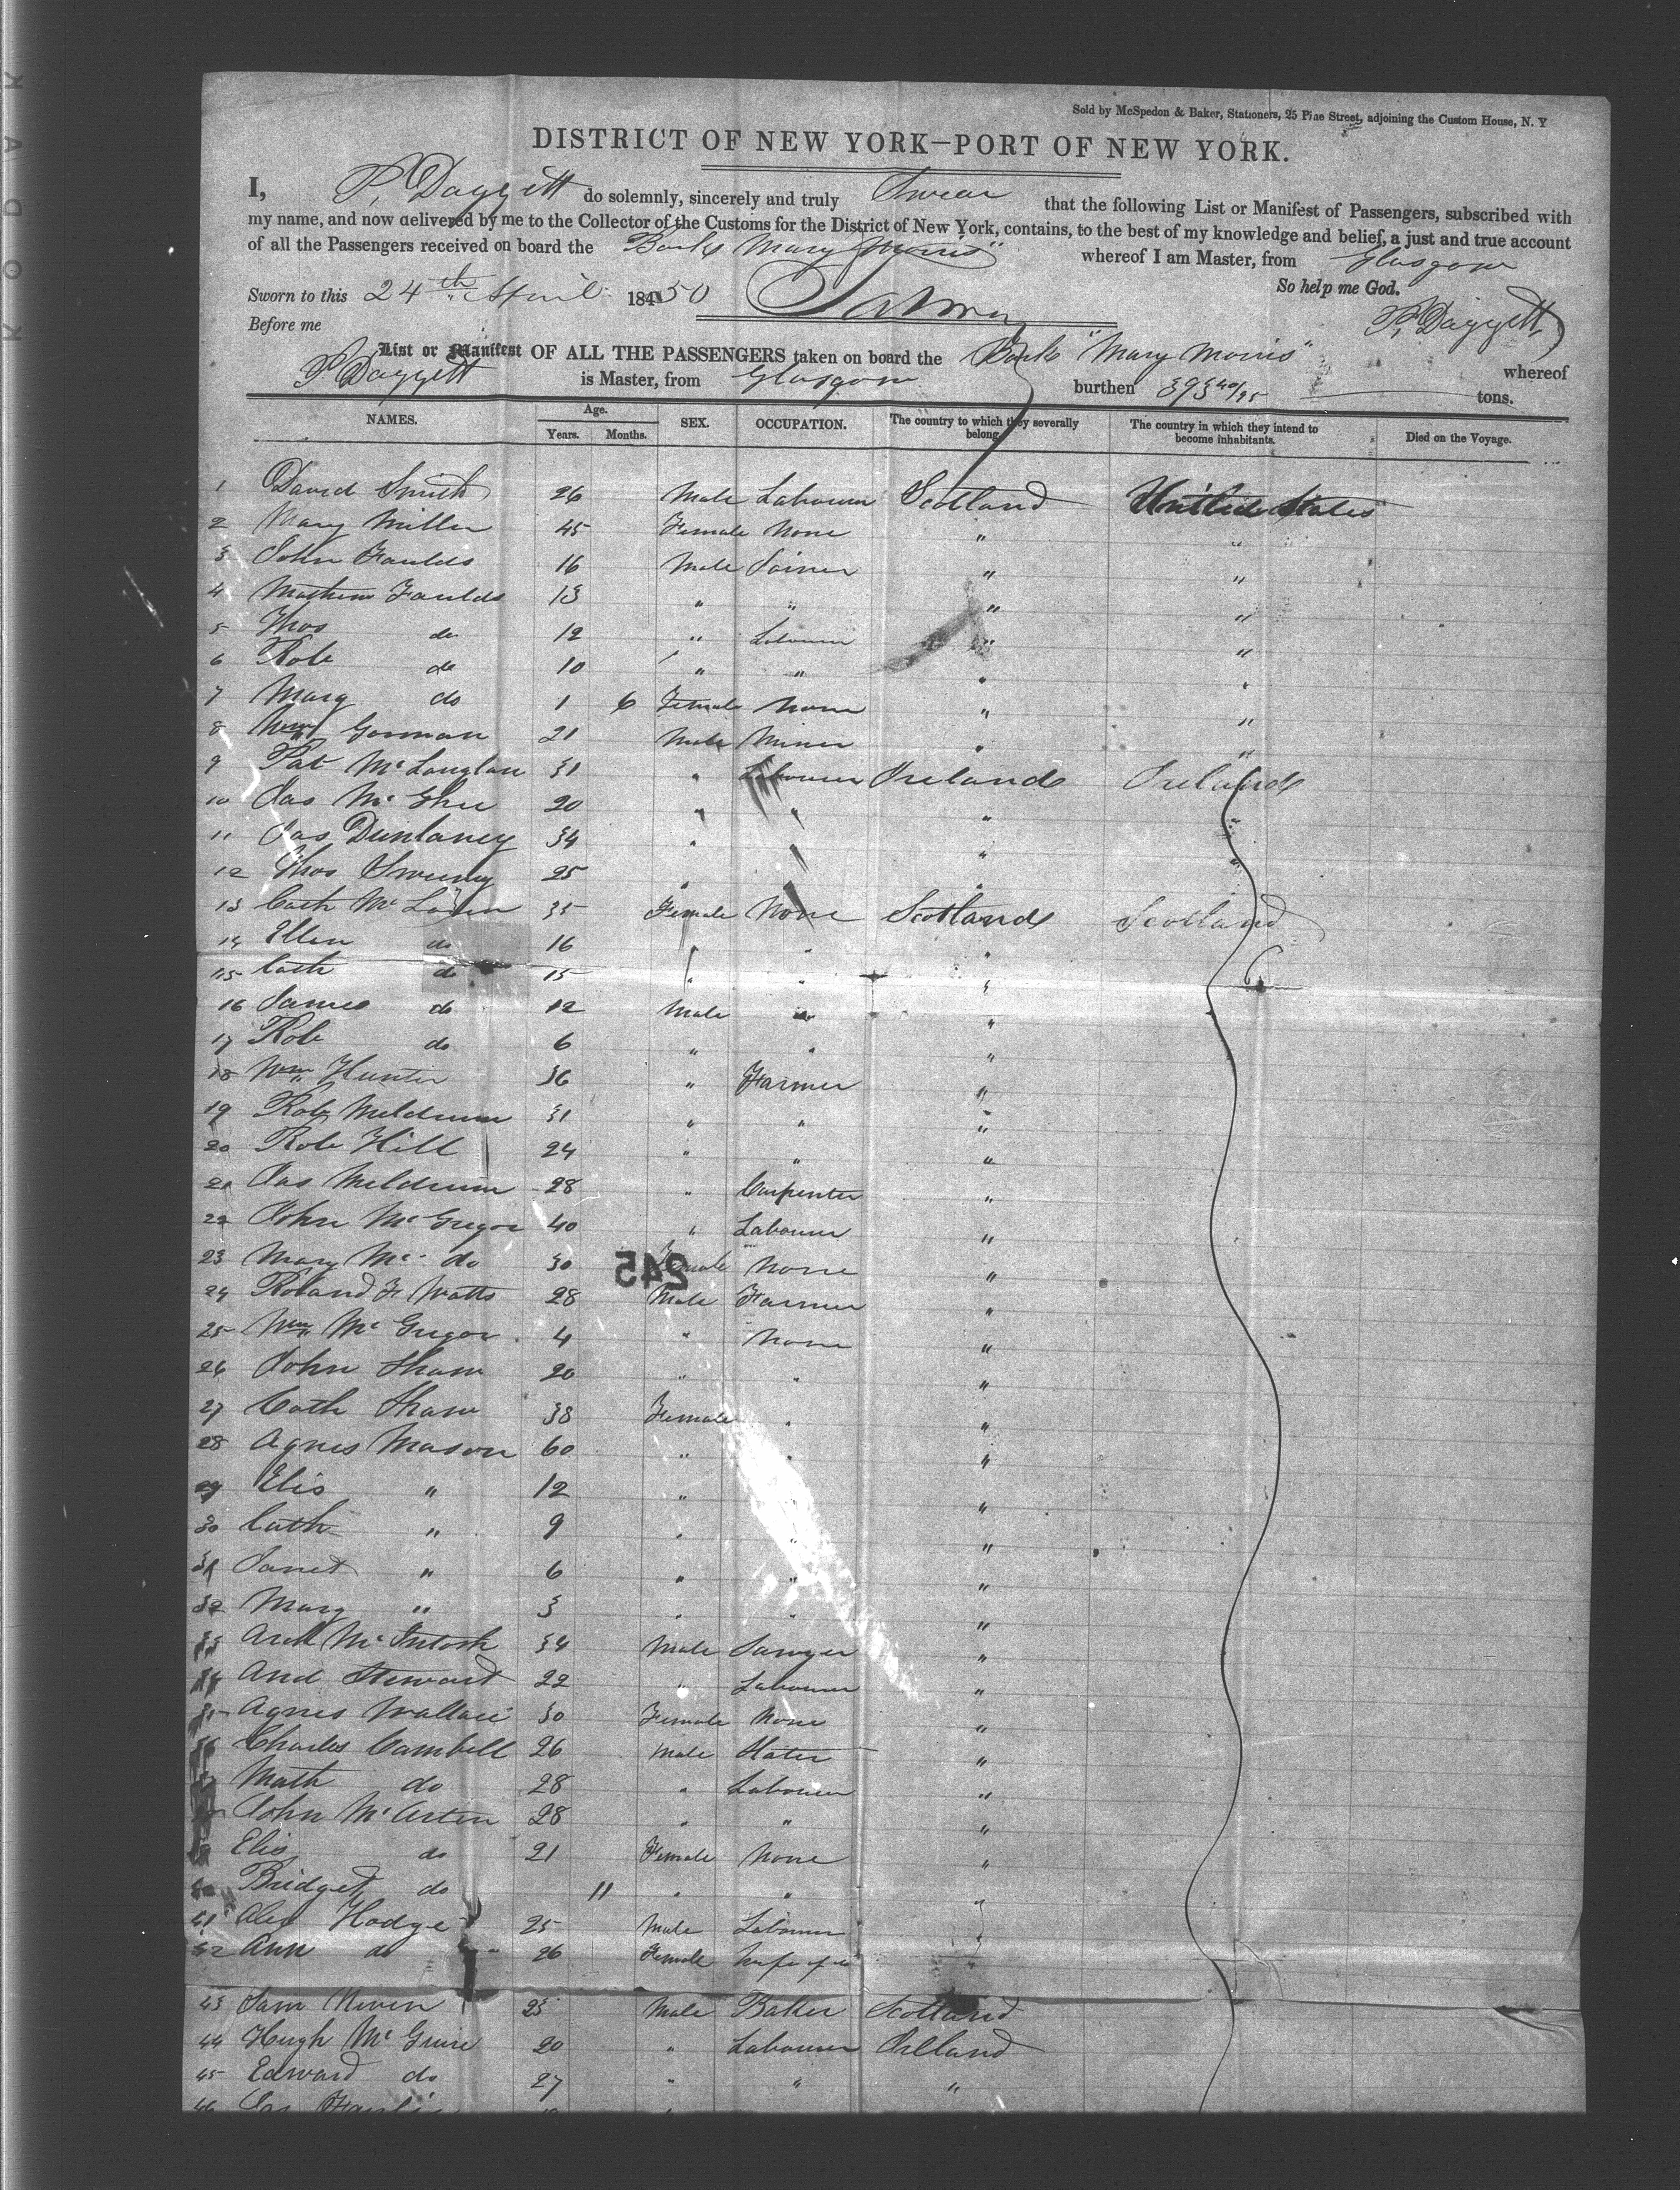 Sold by McSpedon & Baker, Stationers, 25 Pine Street, adjoining the Custom House, N. Y
DISTRICT OF NEW YORK—PORT OF NEW YORK.
I, P. Daggett do solemnly, sincerely and truly Swear that the following List or Manifest of Passengers, subscribed with
my name, and now delivered by me to the Collector of the Customs for the District of New York, contains, to the best of my knowledge and belief, a just and true account
of all the Passengers received on board the Bark "Mary Morris" whereof I am Master, from Glasgow
Sworn to this 24th April 1850 So help me God.
Before me P. Daggett
List or Manifest OF ALL THE PASSENGERS taken on board the Bark "Mary Morris" whereof
P. Daggett is Master, from Glasgow burthen 393 40/95 tons.
NAMES. Age. Years. Months. SEX. OCCUPATION. The country to which they severally belong. The country in which they intend to become inhabitants. Died on the Voyage.
1 David Smith 26 Male Labourer Scotland United States
2 Mary Miller 45 Female None " "
3 John Faulds 16 Male Joiner " "
4 Mathew Faulds 13 " " " "
5 Thos do 12 " Labourer " "
6 Rob do 10 " " " "
7 Marg do 1 6 Female None " "
8 Wm Gorman 21 Male Miner " "
9 Pat McLauglan 31 " Labourer Ireland Ireland
10 Jas McGhee 20 " " " "
11 Jas Dunlaney 34 " " "
12 Thos Sweeny 25 " "
13 Cath Mc 35 Female None Scotland Scotland
14 Ellen do 16 " " "
15 Cath do 15 " " "
16 James do 12 Male " "
17 Rob do 6 " " "
18 Wm Hunter 36 " Farmer "
19 Rob Meldrum 31 " " "
20 Rob Hill 24 " " "
21 Jas Meldrum 28 " Carpenter "
22 John McGregor 40 " Labourer "
23 Mary Mc do 30 Female None "
245
24 Roland F Watts 28 Male Farmer "
25 Wm McGregor 4 " None "
26 John Shaw 20 " " "
27 Cath Shaw 38 Female " "
28 Agnes Mason 60 " " "
29 Elis " 12 " "
30 Cath " 9 " " "
31 Janet " 6 " " "
32 Marg " 3 " " "
33 Arch McIntosh 34 Male Sawyer "
34 And Stewart 22 " Labourer "
35 Agnes Wallace 30 Female None "
36 Charles Cambell 26 Male Slater "
37 Math do 28 " Labourer "
38 John McArten 28 " " "
39 Elis do 21 Female None "
40 Bridget do 11 " " "
41 Alex Hodge 25 Male Labourer "
42 Ann do 26 Female Wife of do
43 Sam Niven 23 Male Baker Scotland
44 Hugh McGuire 20 " Labourer Irland
45 Edward do 27 " " "
46 Jas